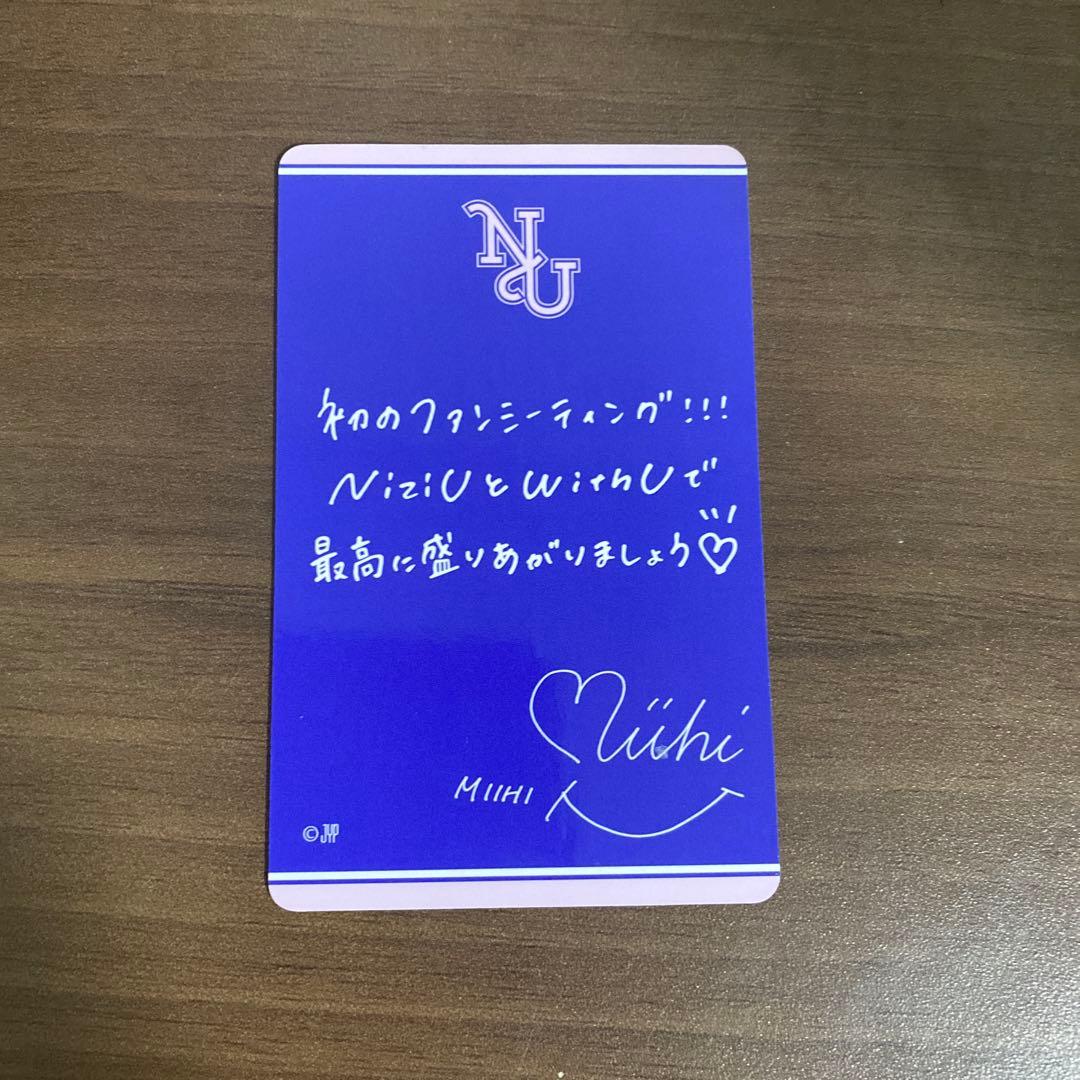 N&U
初のファンミーティング!!!
NiziUとWithUで
最高に盛りあがりましょう♡
Miihi
MIIHI
©JYP